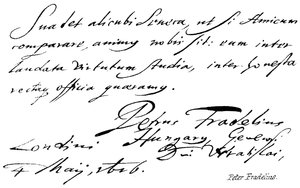 Suadet alicubi Seneca, ut si Amicum
comparare, animus nobis sit: eum inter
laudata Virtutum Studia, inter honesta
officia quaeramus.
Petrus Fradelius
Hungary
Londini
Maij, 1616.
Peter Fradelius.